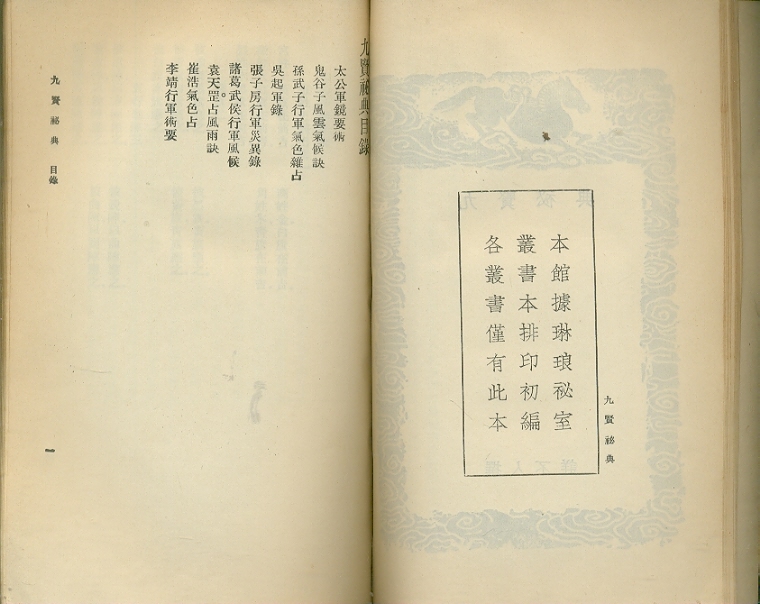 本館據琳琅祕室
叢書本排印初編
各叢書僅有此本
九賢祕典
九賢祕典目錄
太公軍鏡要術
鬼谷子風雲氣候訣
孫武子行軍氣色雜占
吳起軍錄
張子房行軍災異錄
諸葛武侯行軍風候
袁天罡占風雨訣
崔浩氣色占
李靖行軍術要
九賢祕典 目錄
一